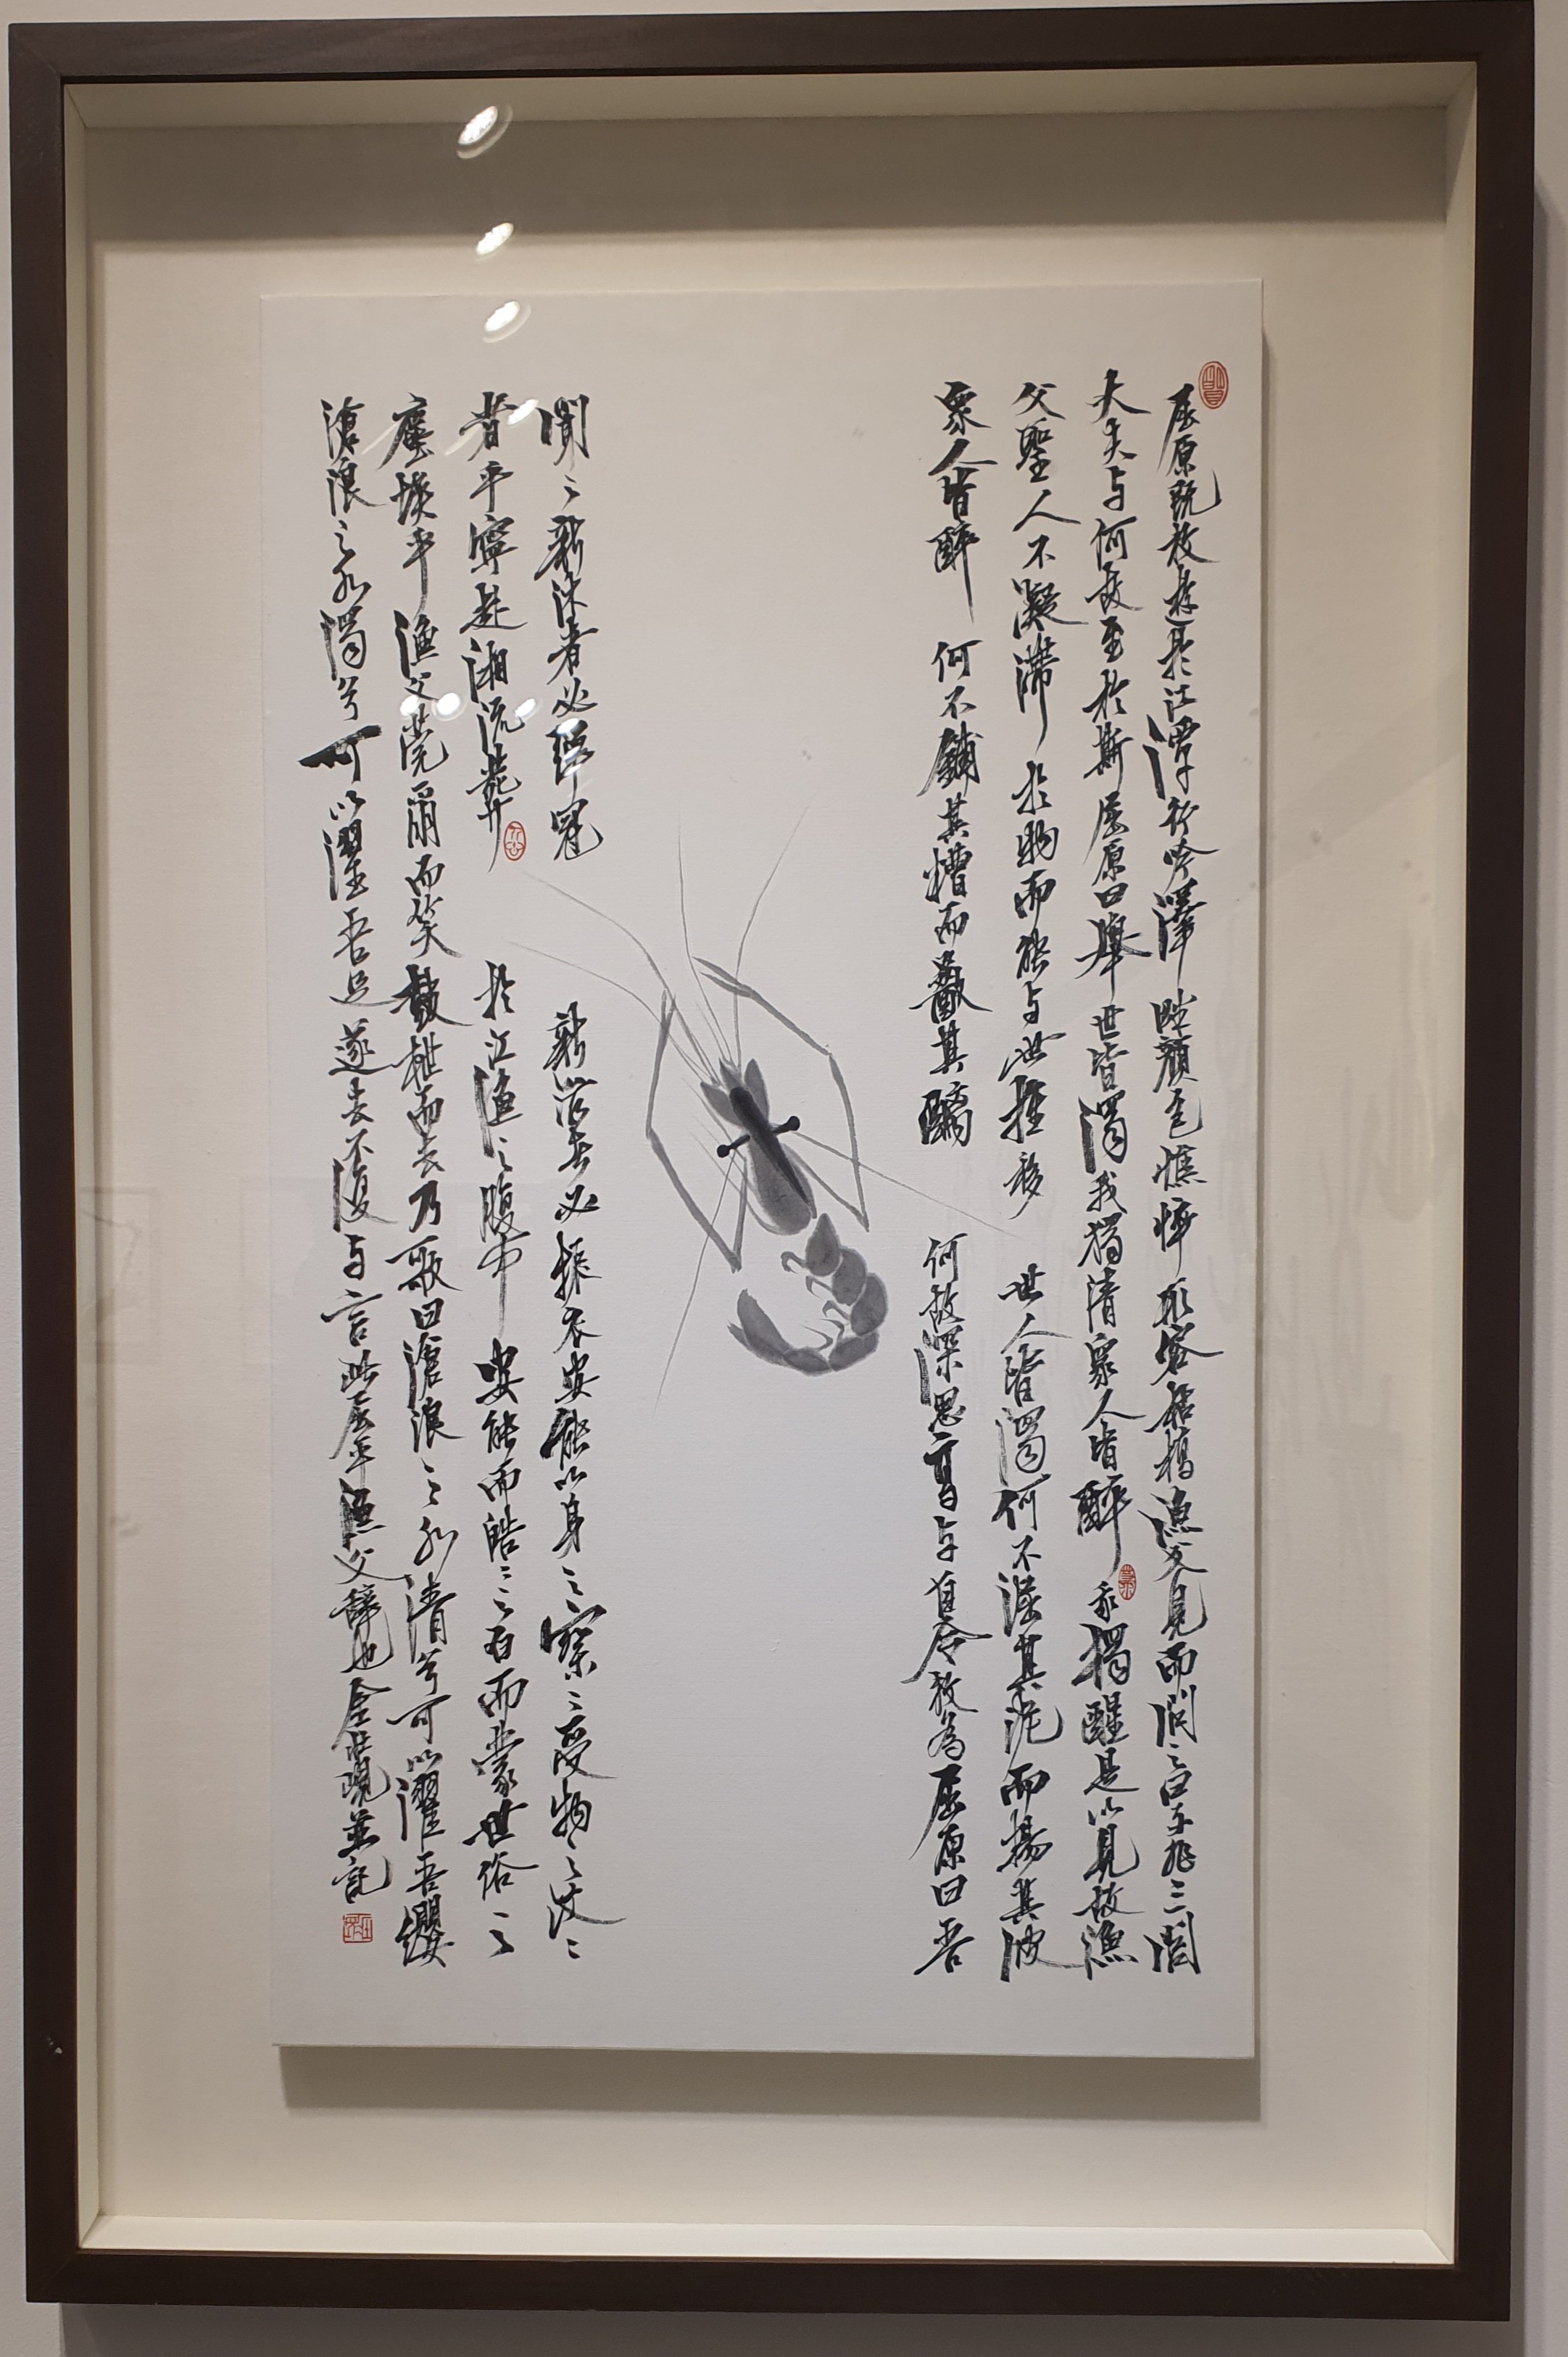 屈原既放遊於江潭行吟澤畔顔色憔悴形容枯槁漁父見而問之曰子非三閭
大夫与何故至於斯屈原曰舉世皆濁我獨清衆人皆醉我獨醒是以見放漁
父聖人不凝滯於物而能与世推移世人皆濁何不淈其泥而揚其波
衆人皆醉何不餔其糟而歠其醨何故深思高舉自令放為屈原曰吾
聞之新沐者必彈冠新浴者必振衣安能以身之察々受物之汶々
者乎寧赴湘流葬於江漁之腹中安能而皓々之白而蒙世俗之
塵埃乎漁父莞爾而笑鼓枻而去乃歌曰滄浪之水清兮可以濯吾纓
滄浪之水濁兮可以濯吾足遂去不復与言此屈平漁父辭也並記